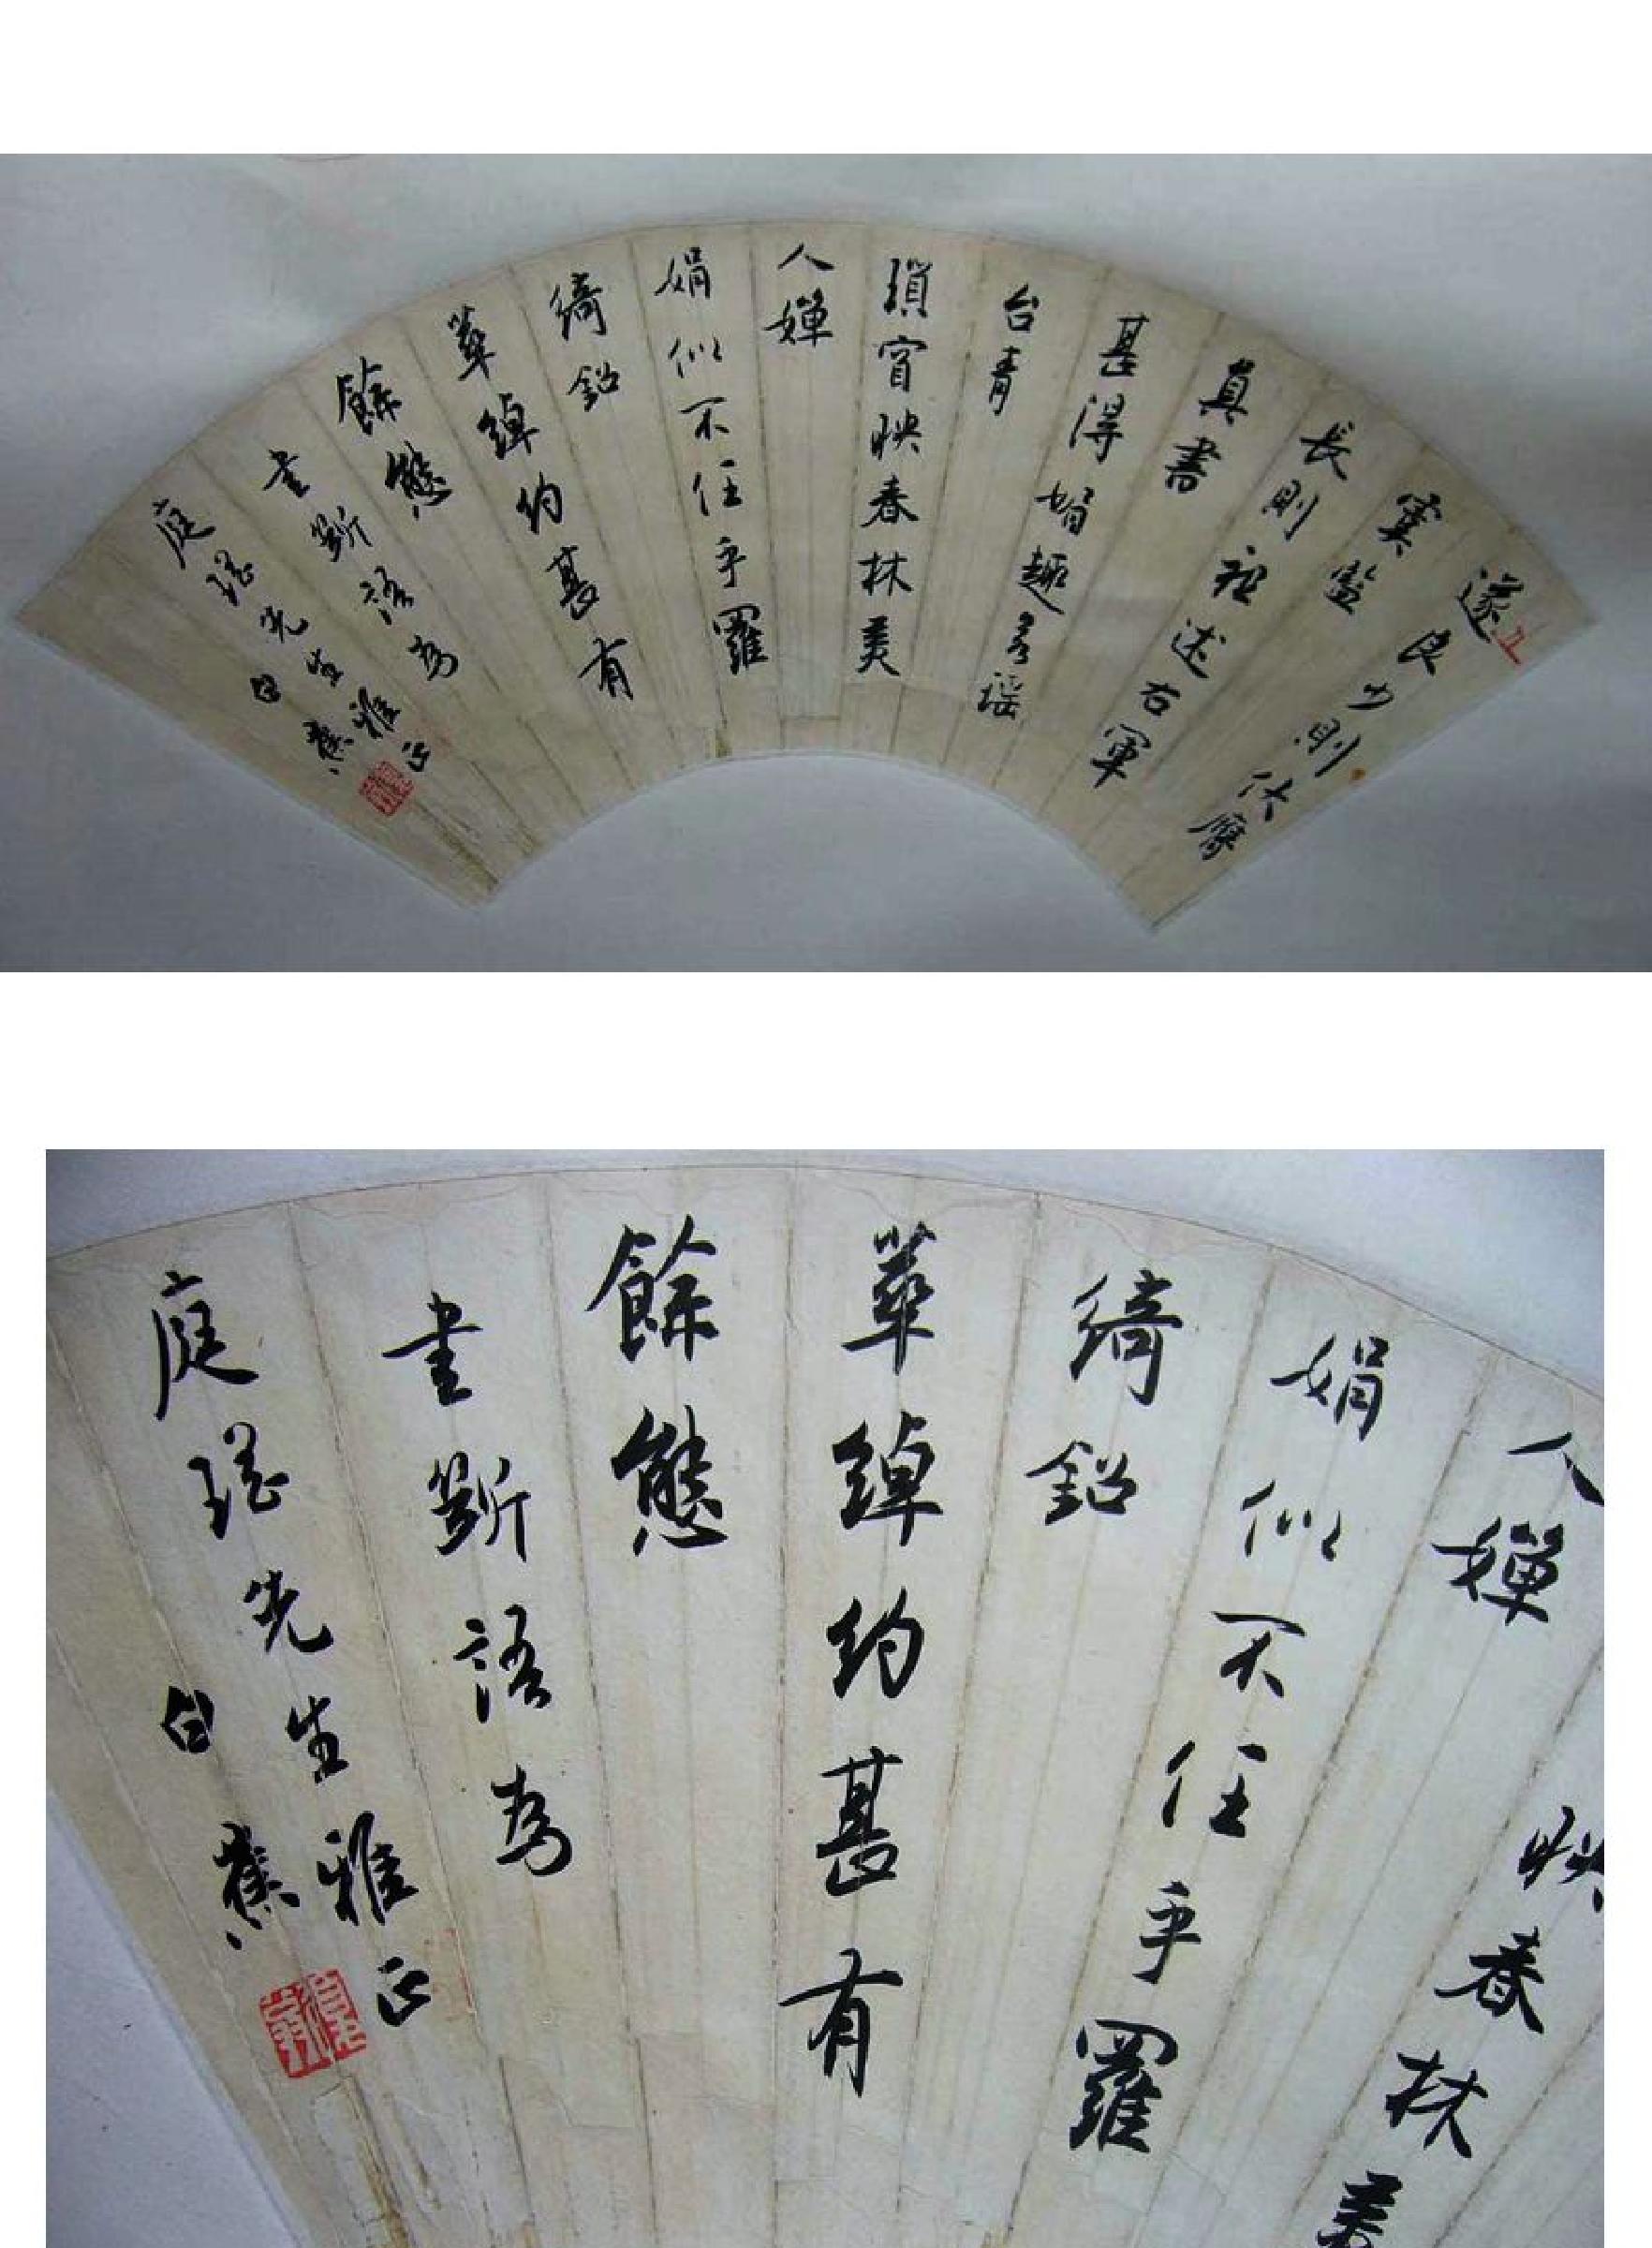 遂良少則伏膺
虞監
長則祖述右軍
真書
甚得媚趣若瑶
台青
瑣窅映春林美
人嬋
娟似不任乎羅
綺鉛
華綽約甚有
餘態
書斷語為
庭瑶先生雅正
白蕉
映春林美
人嬋
娟似不任乎羅
綺鉛
華綽約甚有
餘態
書斷語為
庭瑶先生雅正
白蕉